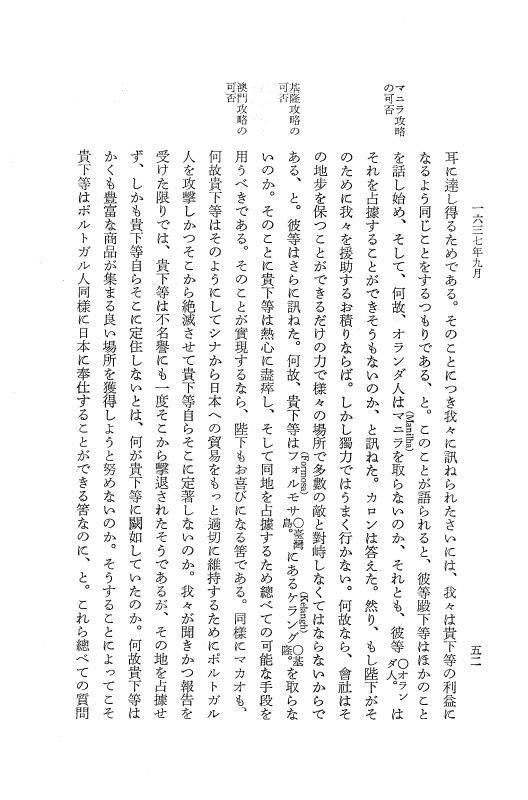 一六三七年九月
五二
マニラ攻略
の可否
基隆攻略の
可否
澳門攻略の
可否
耳に達し得るためである。そのことにつき我々に訊ねられたさいには、我々は貴下等の利益に
なるよう同じことをするつもりである、と。このことが語られると、彼等殿下等はほかのこと
を話し始め、そして、何故、オランダ人はマニラ(Manilha)を取らないのか、それとも、彼等〇オランダ人。は
それを占據することができそうもないのか、と訊ねた。カロンは答えた。然り、もし陛下がそ
のために我々を援助するお積りならば。しかし獨力ではうまく行かない。何故なら、會社はそ
の地步を保つことができるだけの力で様々の場所で多數の敵と對峙しなくてはならないからで
ある、と。彼等はさらに訊ねた。何故、貴下等はフォルモサ(Formosa)〇臺灣島。にあるケラング(Kelangh)〇基隆。を取らな
いのか。そのことに貴下等は熱心に盡瘁し、そして同地を占據するため總べての可能な手段を
用うべきである。そのことが實現するなら、陛下もお喜びになる筈である。同樣にマカオも、
何故貴下等はそのようにしてシナから日本への貿易をもっと適切に維持するためにポルトガル
人を攻擊しかつそこから絕滅させて貴下等自らそこに定著しないのか。我々が聞きかつ報告を
受けた限りでは、貴下等は不名譽にも一度そこから擊退されたそうであるが、その地を占據せ
ず、しかも貴下等自らそこに定住しないとは、何が貴下等に闕如していたのか。何故貴下等は
かくも豐富な商品が集まる良い場所を獲得しようと努めないのか。そうすることによってこそ
貴下等はポルトガル人同樣に日本に奉仕することができる筈なのに、と。これら總べての質問